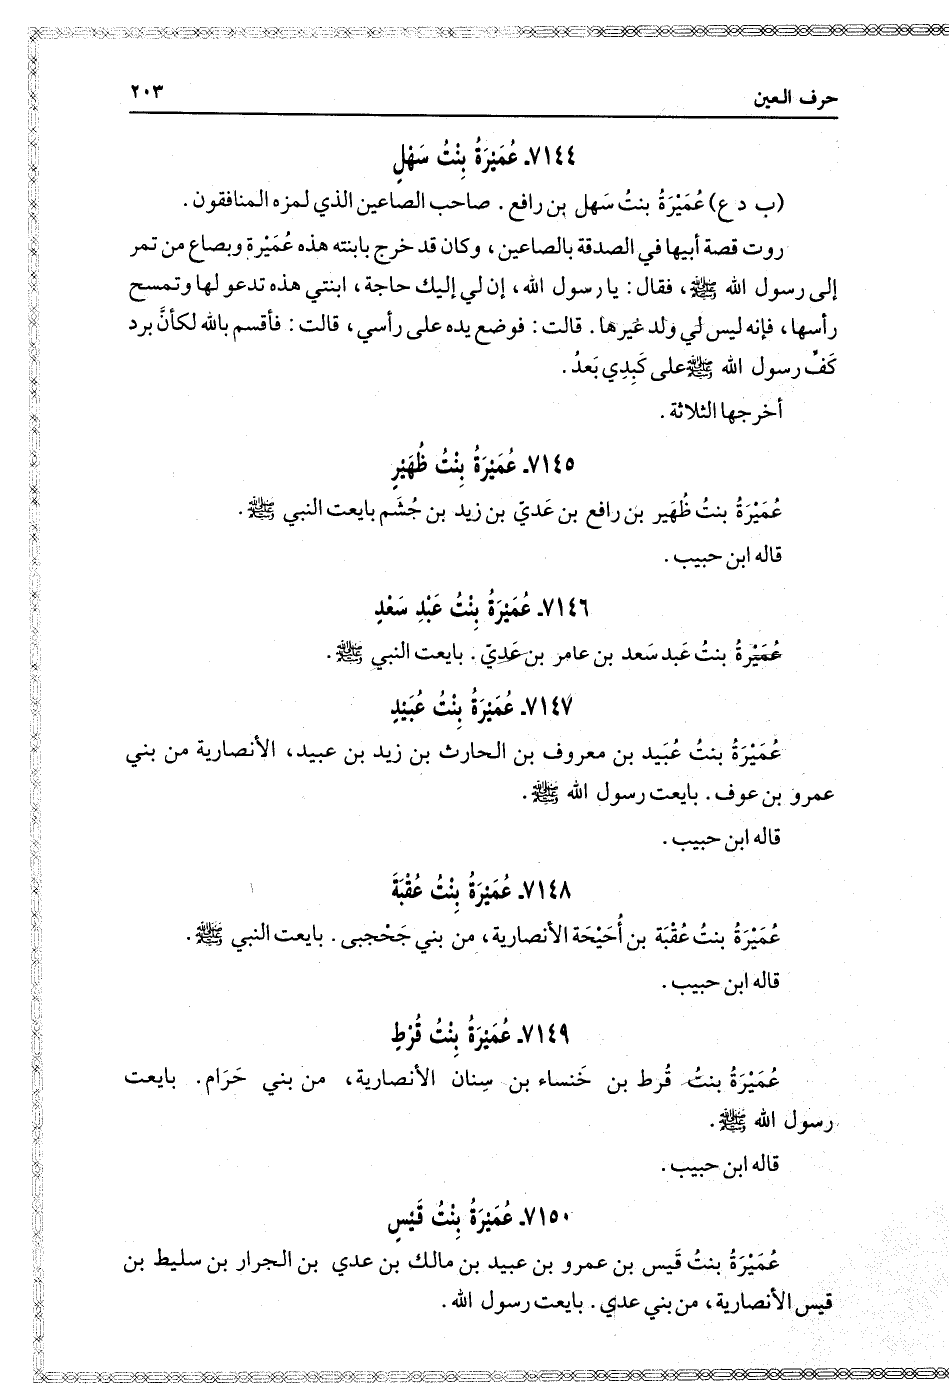 حرف العين ٢٠٣
٧١٤٤ـ عُمَيْرَةُ بِنْتُ سَهْلٍ
(ب د ع) عُمَيْرَةُ بنتُ سَهل بن رافع. صاحب الصاعين الذي لمزه المنافقون.
روت قصة أبيها في الصدقة بالصاعين، وكان قد خرج بابنته هذه عُمَيْرة وبصاع من تمر
إلى رسول الله ﷺ، فقال: يا رسول الله، إن لي إليك حاجة، ابنتي هذه تدعو لها وتمسح
رأسها، فإنه ليس لي ولد غيرها. قالت: فوضع يده على رأسي، قالت: فأقسم بالله لكأنَّ برد
كَفِّ رسول الله ﷺ على كَبِدِي بَعدُ.
أخرجها الثلاثة.
٧١٤٥ـ عُمَيْرَةُ بِنْتُ ظُهَيْرٍ
عُمَيْرَةُ بنتُ ظُهَير بن رافع بن عَديّ بن زيد بن جُشَم بايعت النبي ﷺ.
قاله ابن حبيب.
٧١٤٦ـ عُمَيْرَةُ بِنْتُ عَبْدِ سَعْدٍ
عُمَيْرَةُ بنتُ عَبد سَعد بن عامر بن عَدِيّ. بايعت النبي ﷺ.
٧١٤٧ـ عُمَيْرَةُ بِنْتُ عُبَيْدٍ
عُمَيْرَةُ بنتُ عُبَيد بن معروف بن الحارث بن زيد بن عبيد، الأنصارية من بني
عمرو بن عوف. بايعت رسول الله ﷺ.
قاله ابن حبيب.
٧١٤٨ـ عُمَيْرَةُ بِنْتُ عُقْبَةَ
عُمَيْرَةُ بنتُ عُقْبَة بن أُحَيْحَة الأنصارية، من بني جَحْجبى. بايعت النبي ﷺ.
قاله ابن حبيب.
٧١٤٩ـ عُمَيْرَةُ بِنْتُ قُرْطٍ
عُمَيْرَةُ بنتُ قُرط بن خَنساء بن سِنان الأنصارية، من بني حَرَام. بايعت
رسول الله ﷺ.
قاله ابن حبيب.
٧١٥٠ـ عُمَيْرَةُ بِنْتُ قَيْسٍ
عُمَيْرَةُ بنتُ قَيس بن عمرو بن عبيد بن مالك بن عدي بن الجرار بن سليط بن
قيس الأنصارية، من بني عدي. بايعت رسول الله.